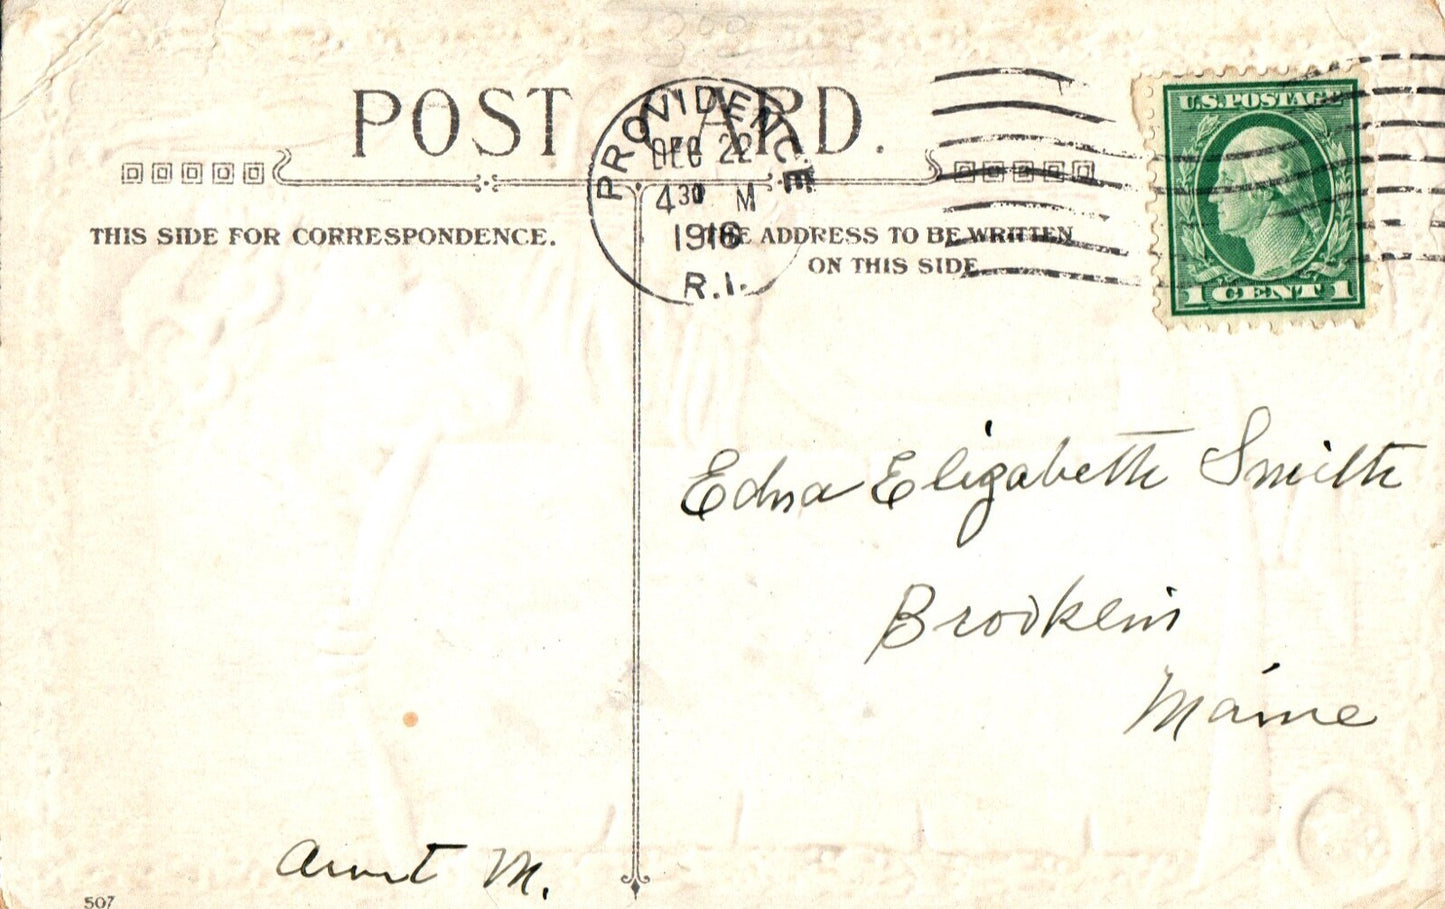 300
POST CARD.
PROVIDENCE
DEC 22
4 30 M
1916
R.I.
U.S.POSTAGE
1 CENT 1
THIS SIDE FOR CORRESPONDENCE.
THE ADDRESS TO BE WRITTEN
ON THIS SIDE
Edna Elizabeth Smith
Brooklin
Maine
Aunt M.
507